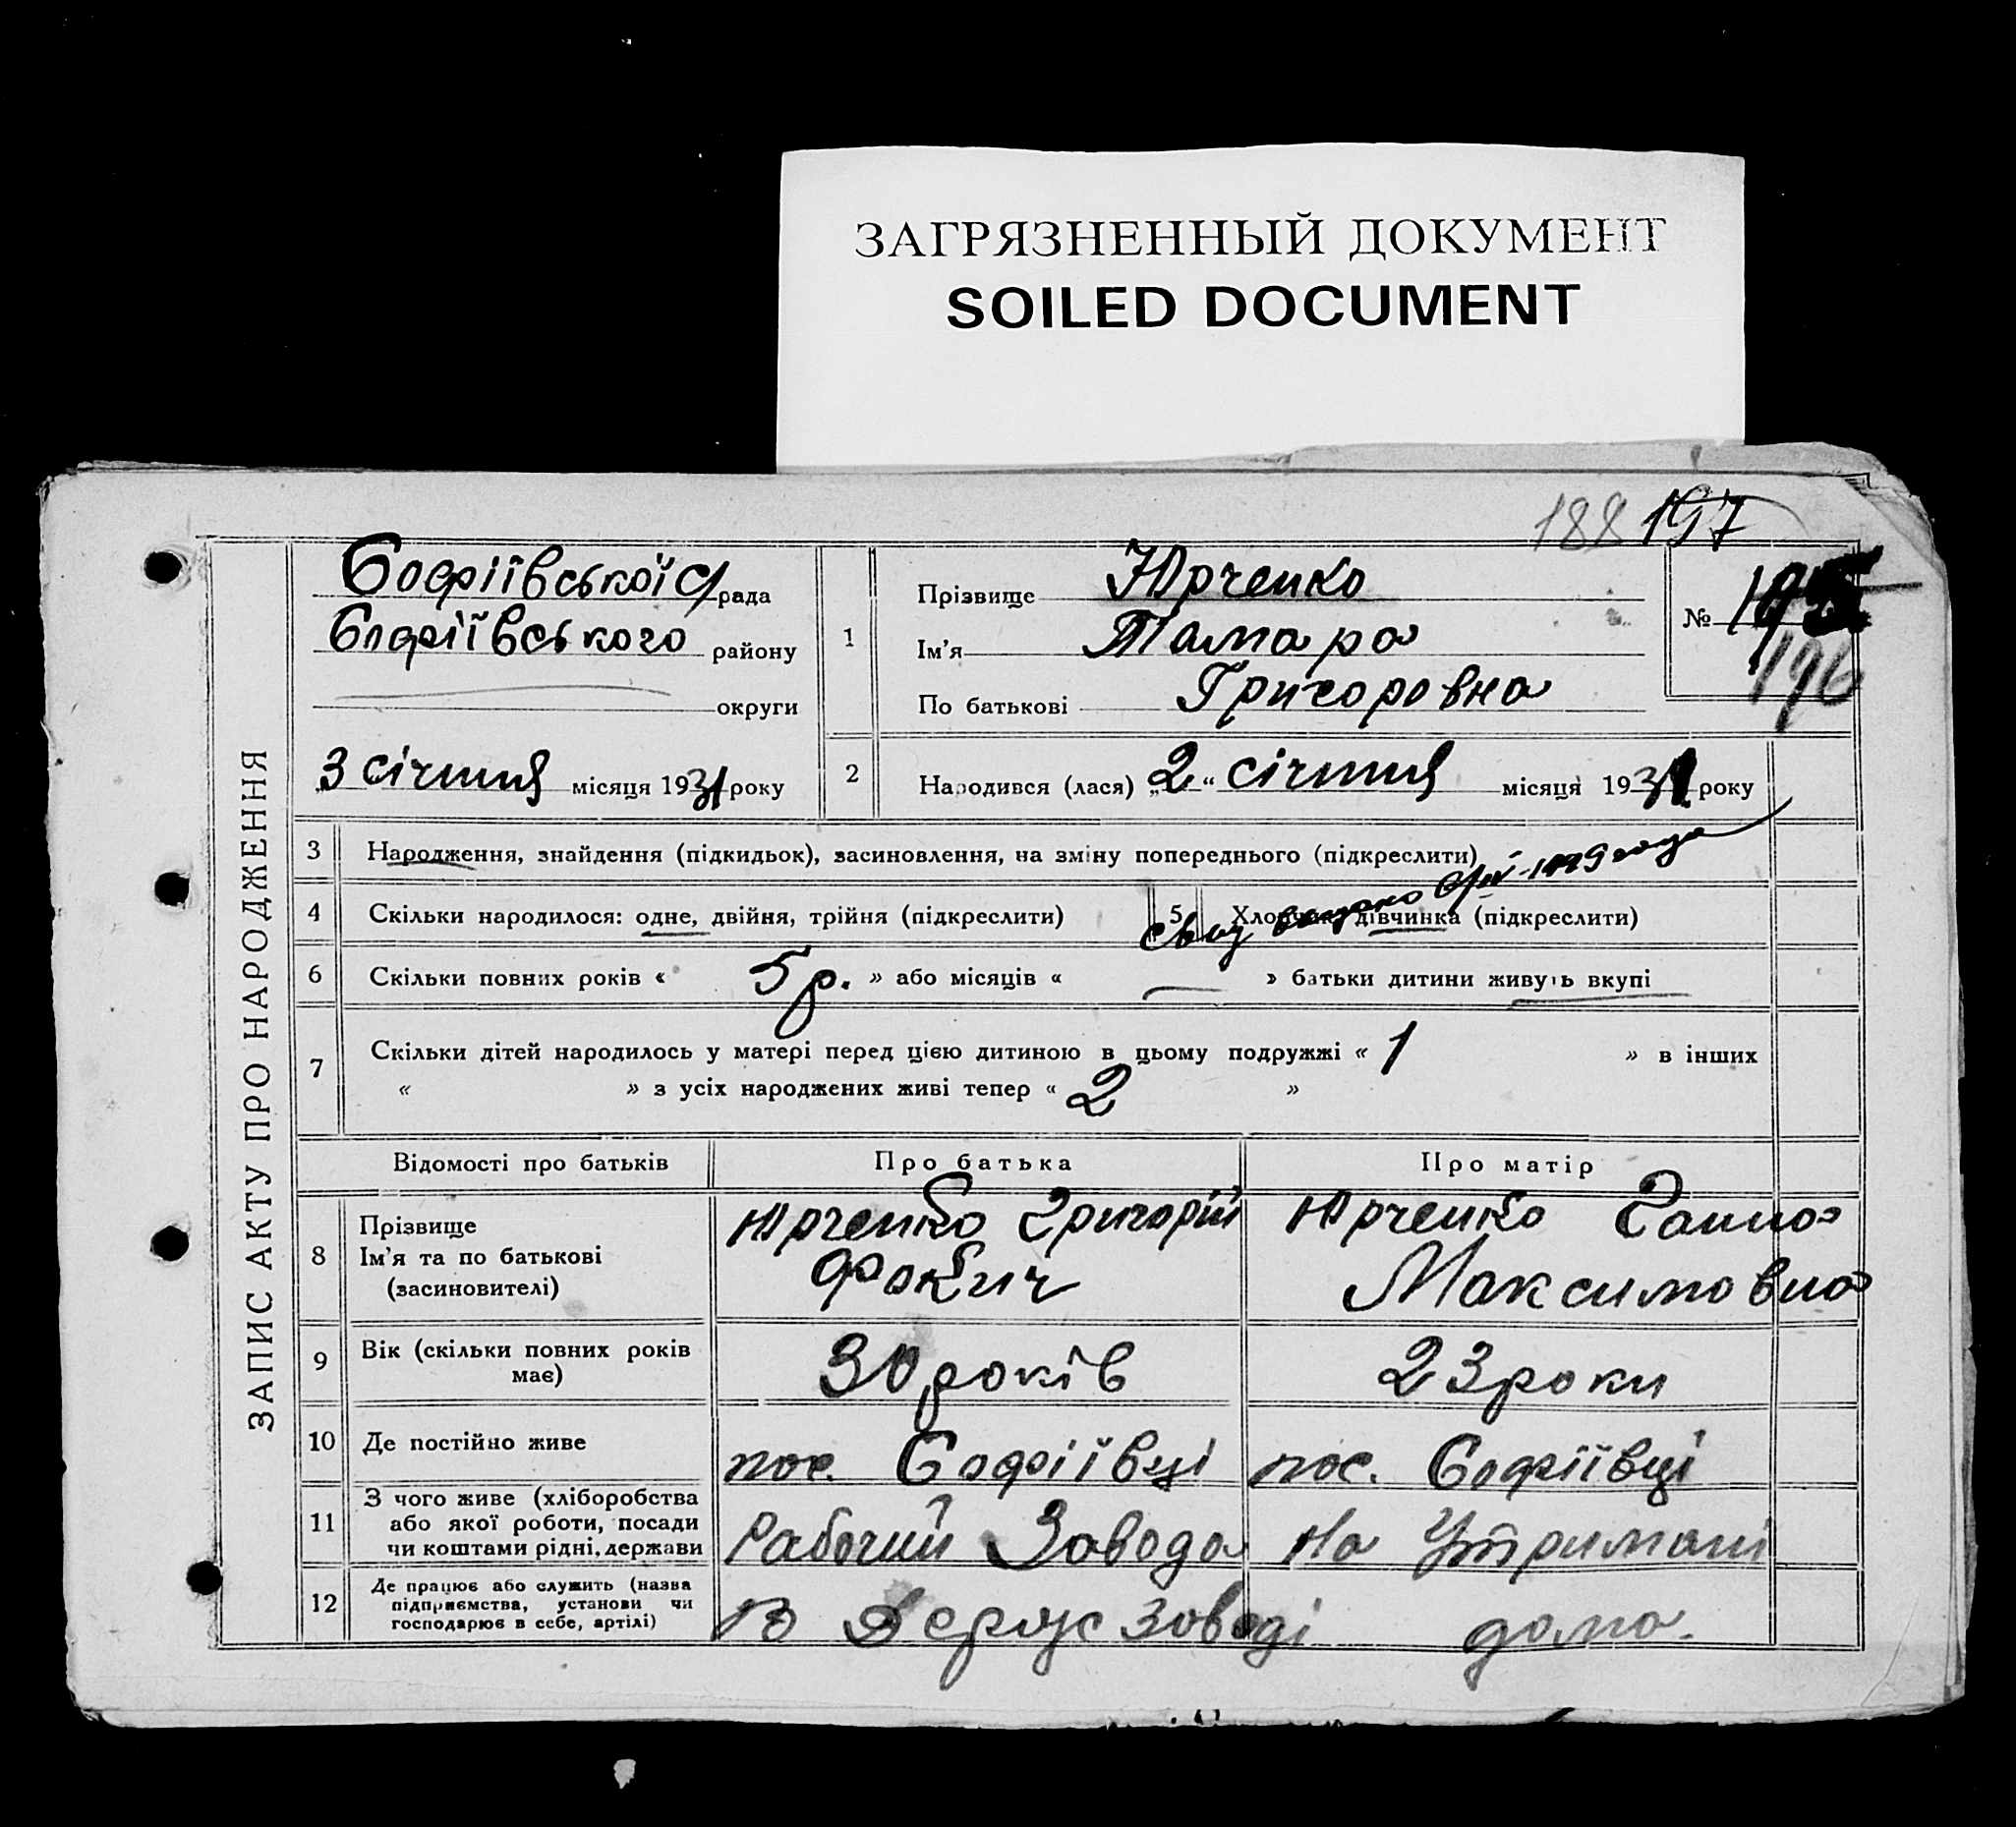 ЗАГРЯЗНЕННЫЙ ДОКУМЕНТ
SOILED DOCUMENT
188 197
ЗАПИС АКТУ ПРО НАРОДЖЕННЯ
Софіївської с/рада
Софіївського району
округи
3 січтня місяця 1931 року
1
Прізвище Юрченко
Ім'я Тамара
По батькові Григоровна
№
196
2 Народився (лася) „2“ січтня місяця 1931 року
3 Народження, знайдення (підкидьок), засиновлення, на зміну попереднього (підкреслити)
4 Скільки народилося: одне, двійня, трійня (підкреслити)
5 Хлопчик, дівчинка (підкреслити)
6 Скільки повних років « 5 р. » або місяців « — » батьки дитини живуть вкупі
7 Скільки дітей народилось у матері перед цією дитиною в цьому подружжі « 1 » в інших
« » з усіх народжених живі тепер « 2 »
Відомості про батьків Про батька Про матір
8 Прізвище
Ім'я та по батькові
(засиновителі)
Юрченко Григорій
Фокич
Юрченко Ганна
Максимовна
9 Вік (скільки повних років
має)
30 років 23 роки
10 Де постійно живе пос. Софіївці пос. Софіївці
11 З чого живе (хліборобства
або якої роботи, посади
чи коштами рідні, держави
Рабочий Завода На Утримані
12 Де працює або служить (назва
підприємства, установи чи
господарює в себе, артілі)
В Держ заводі дома.